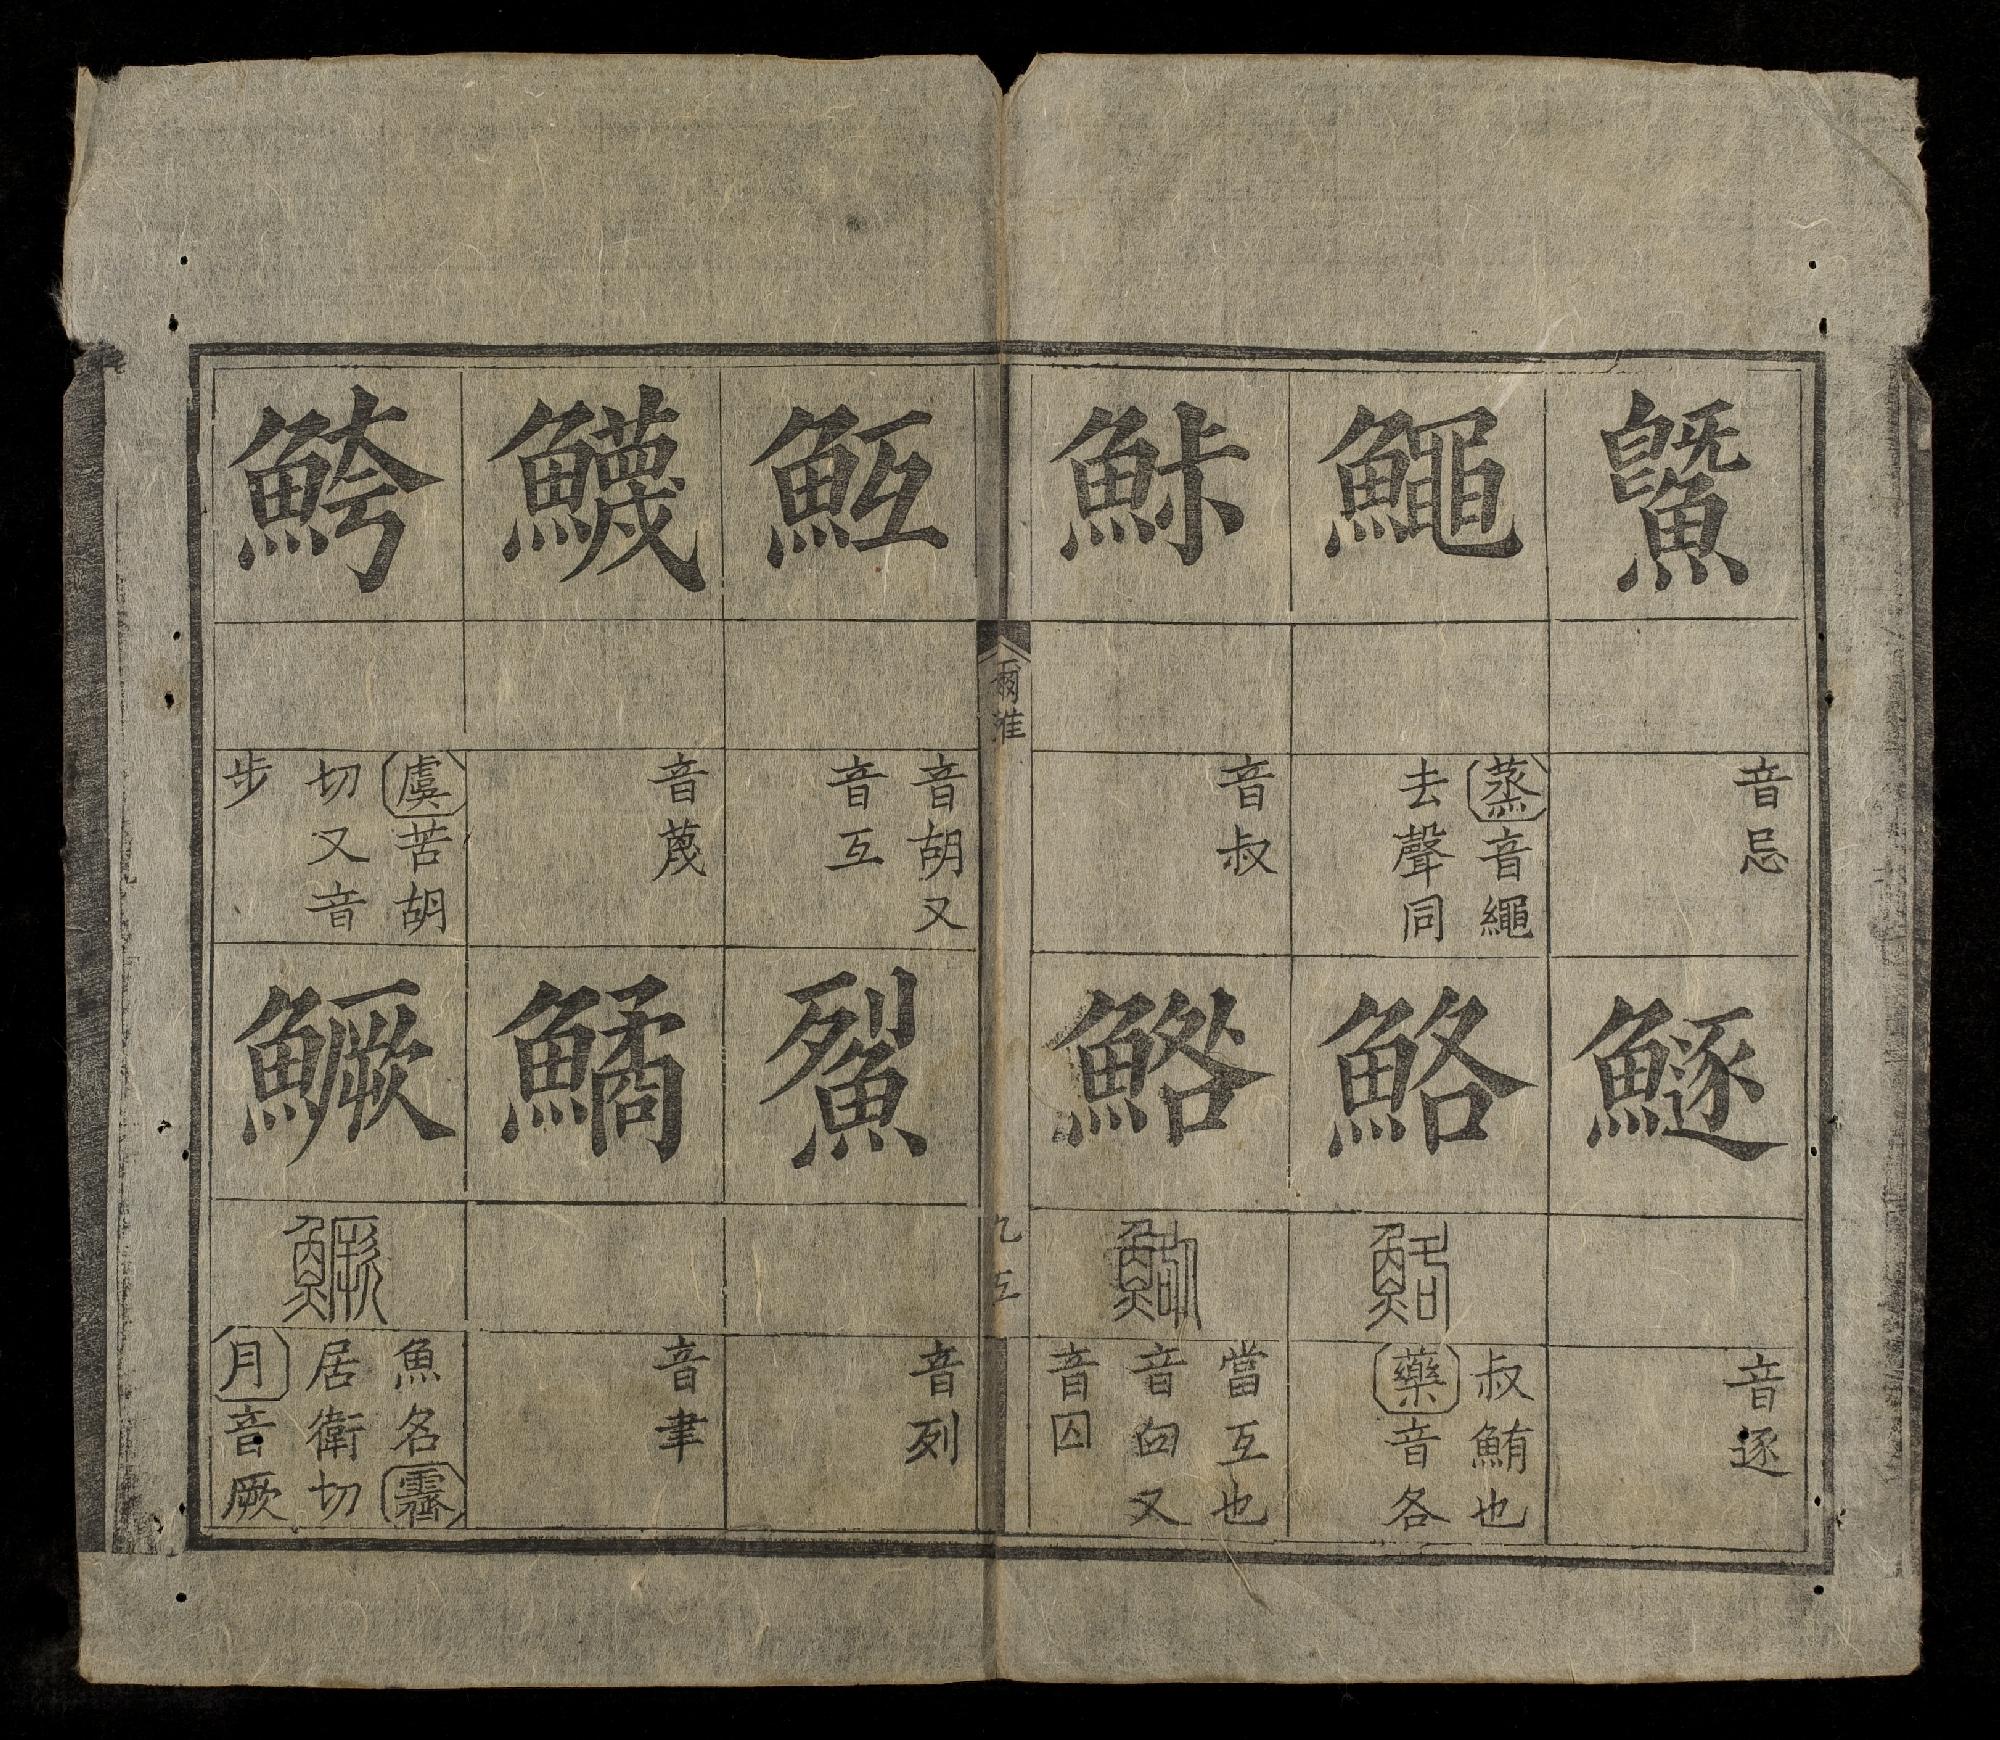 鱀
音忌
鱁
音逐
鱦
蒸音繩
去聲同
鮥
鮥
叔鮪也
藥音各
鮛
音叔
鯦
鯦
當互也
音臼又
音囚
爾雅
九五
魱
音胡又
音互
鮤
音列
鱴
音蔑
鱊
音聿
鮬
虞苦胡
切又音
步
鱖
鱖
魚名霽
居衛切
月音厥